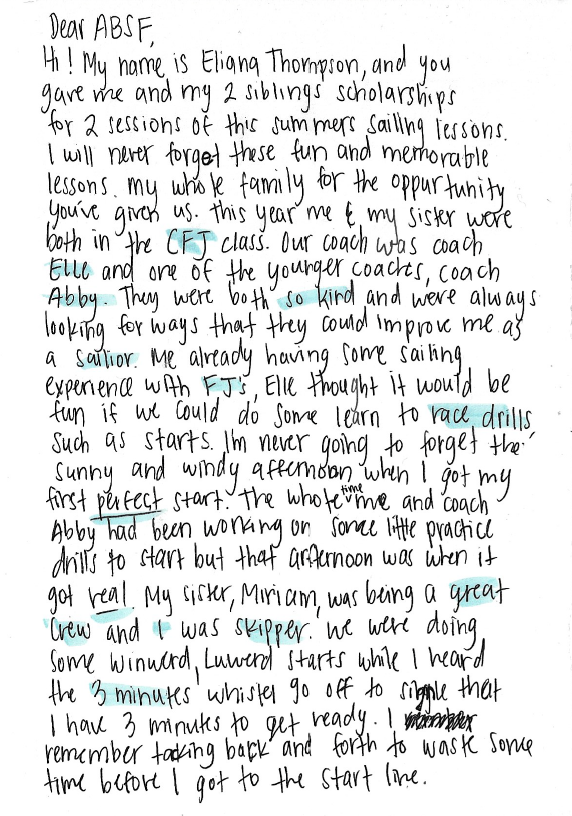 Dear ABSF,
Hi! My name is Eliana Thompson, and you
gave me and my 2 siblings scholarships
for 2 sessions of this summers sailing lessons.
I will never forget these fun and memorable
lessons. my whole family for the oppurtunity
you've given us. This year me & my sister were
both in the CFJ class. Our coach was coach
Elle and one of the younger coaches, coach
Abby. They were both so kind and were always
looking for ways that they could improve me as
a sailior. Me already having some sailing
experience with FJ's, Elle thought it would be
fun if we could do some learn to race drills
such as starts. I'm never going to forget the
sunny and windy afternoon when I got my
first perfect start. The whole time me and coach
Abby had been working on some little practice
drills to start but that afternoon was when it
got real. My sister, Miriam, was being a great
crew and I was skipper. We were doing
some winwerd, Luwerd starts while I heard
the 3 minutes whistel go off to signle that
I have 3 minutes to get ready. I
remember tacking back and forth to waste some
time before I got to the start line.